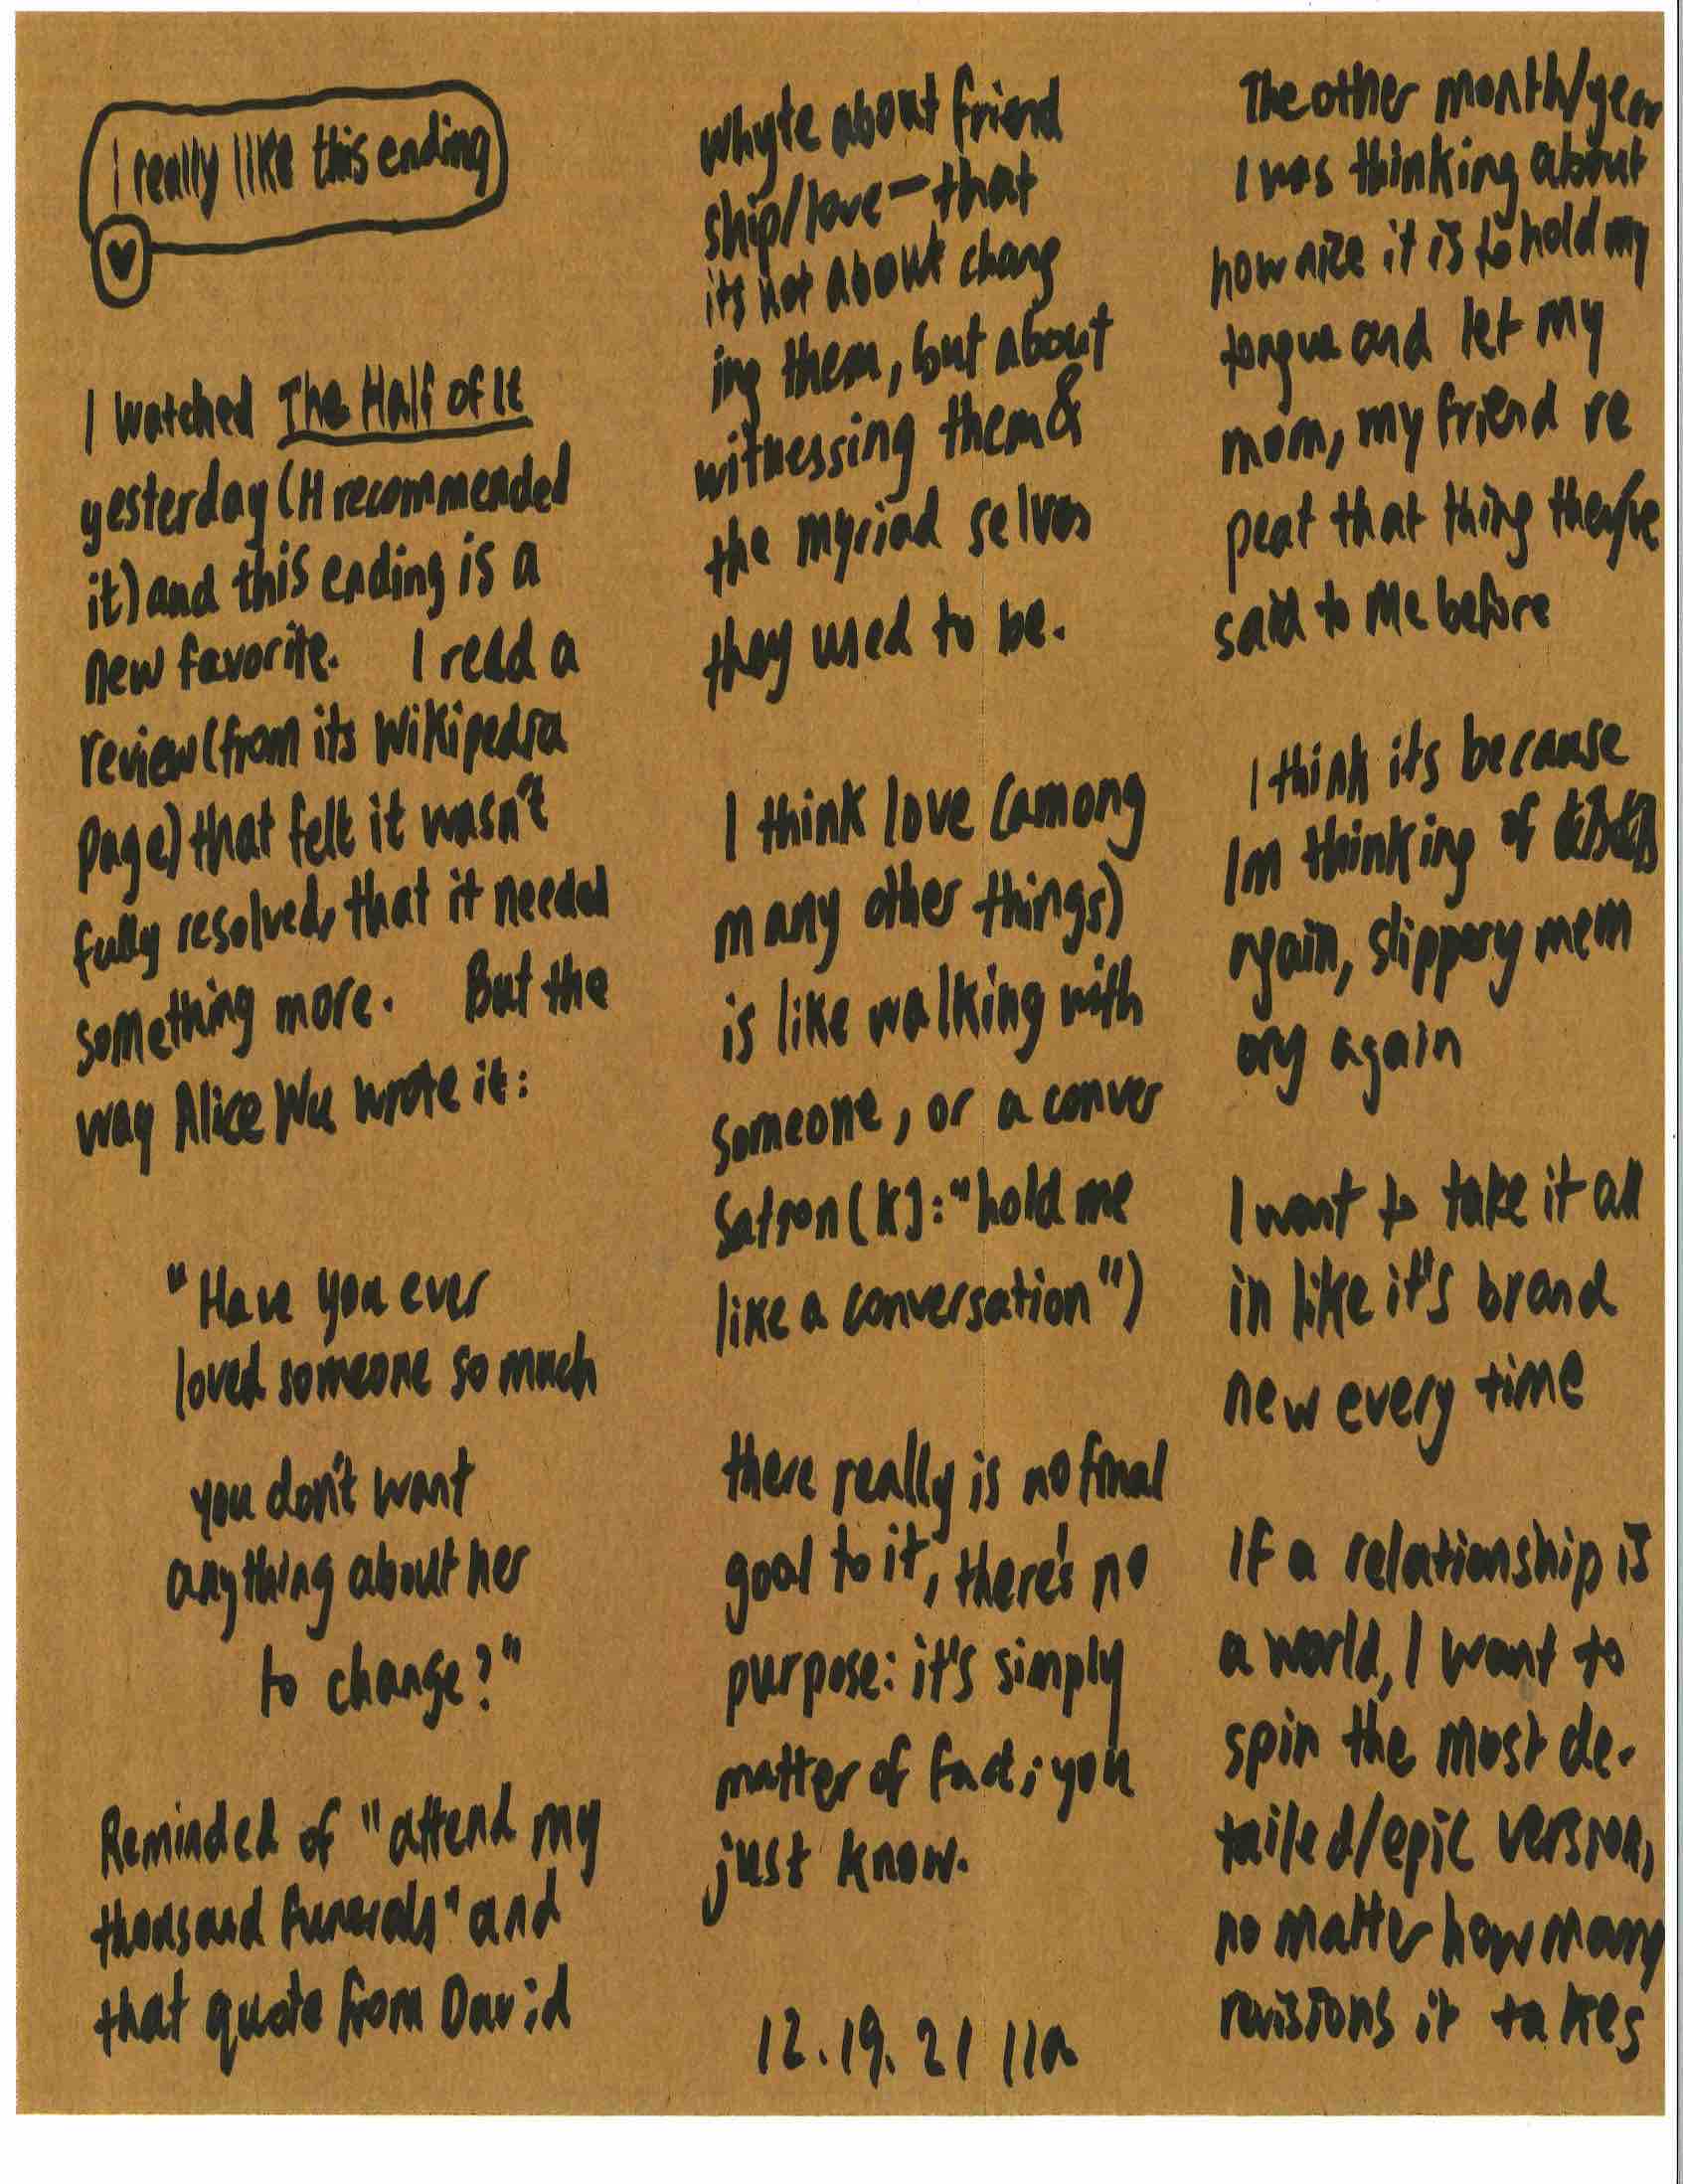 i really like this ending
I watched The Half of It
yesterday (H recommended
it) and this ending is a
new favorite. I read a
review (from its Wikipedia
page) that felt it wasn't
fully resolved, that it needed
something more. But the
way Alice Wu wrote it:
"Have you ever
loved someone so much
you don't want
anything about her
to change?"
Reminded of "attend my
thousand funerals" and
that quote from David
Whyte about friend
ship/love—that
its not about chang
ing them, but about
witnessing them &
the myriad selves
they used to be.
I think love (among
many other things)
is like walking with
someone, or a conver
sation (K]: "hold me
like a conversation")
there really is no final
goal to it, there's no
purpose: it's simply
matter of fact; you
just know.
12.19.21 11a
The other month/year
I was thinking about
how nice it is to hold my
tongue and let my
mom, my friend re
peat that thing they've
said to me before
I think its because
Im thinking of
again, slippery mem
ory again
I want to take it all
in like it's brand
new every time
If a relationship is
a world, I want to
spin the most de-
tailed/epic version,
no matter how many
revisions it takes